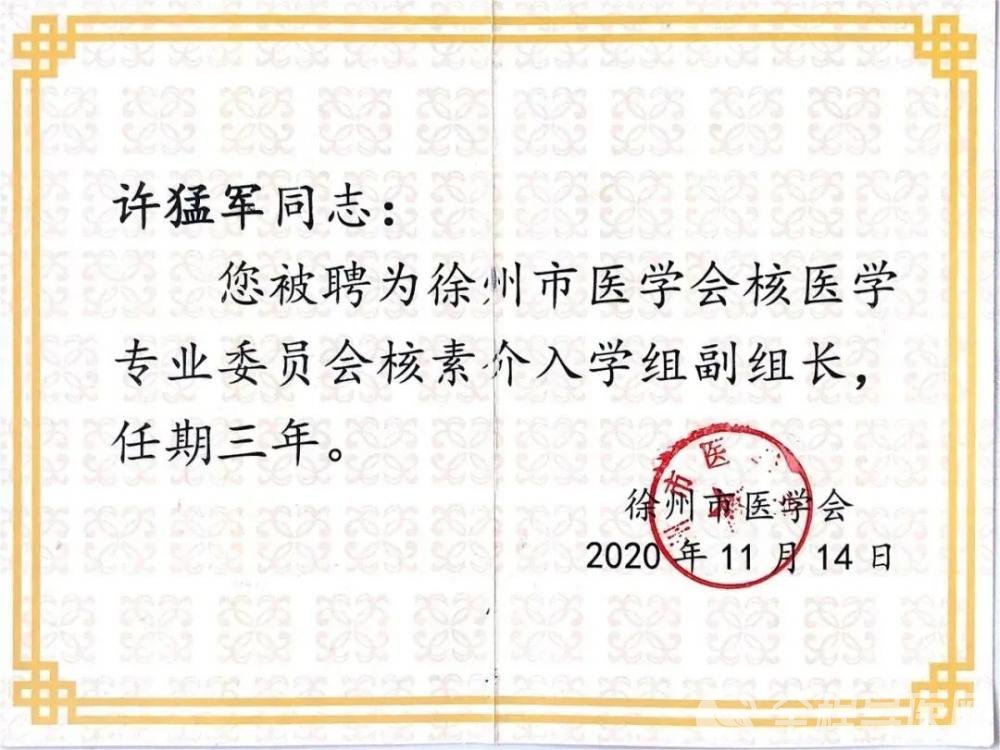 许猛军同志：
您被聘为徐州市医学会核医学
专业委员会核素介入学组副组长，
任期三年。
徐州市医学会
2020 年 11 月 14 日